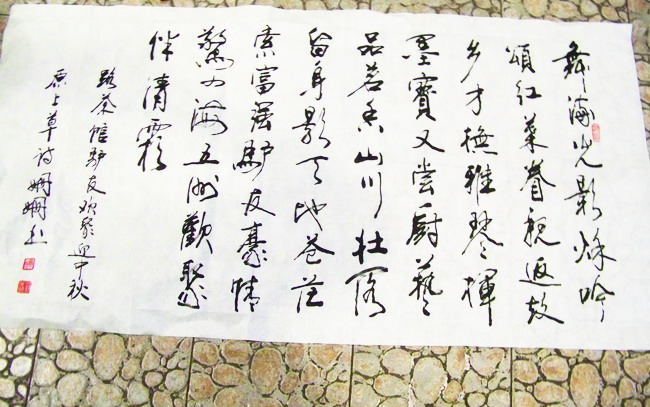 舞海光影烁吟
頌紅葉眷祝返故
乡才撫雅琴揮
墨寶又尝厨藝
品茗香山川壮阔
留身影天地苍茫
索富强驴友豪情
驚四海五洲歡聚
伴清霞
路茶馆驴友欢聚迎中秋
原上草诗姗姗书